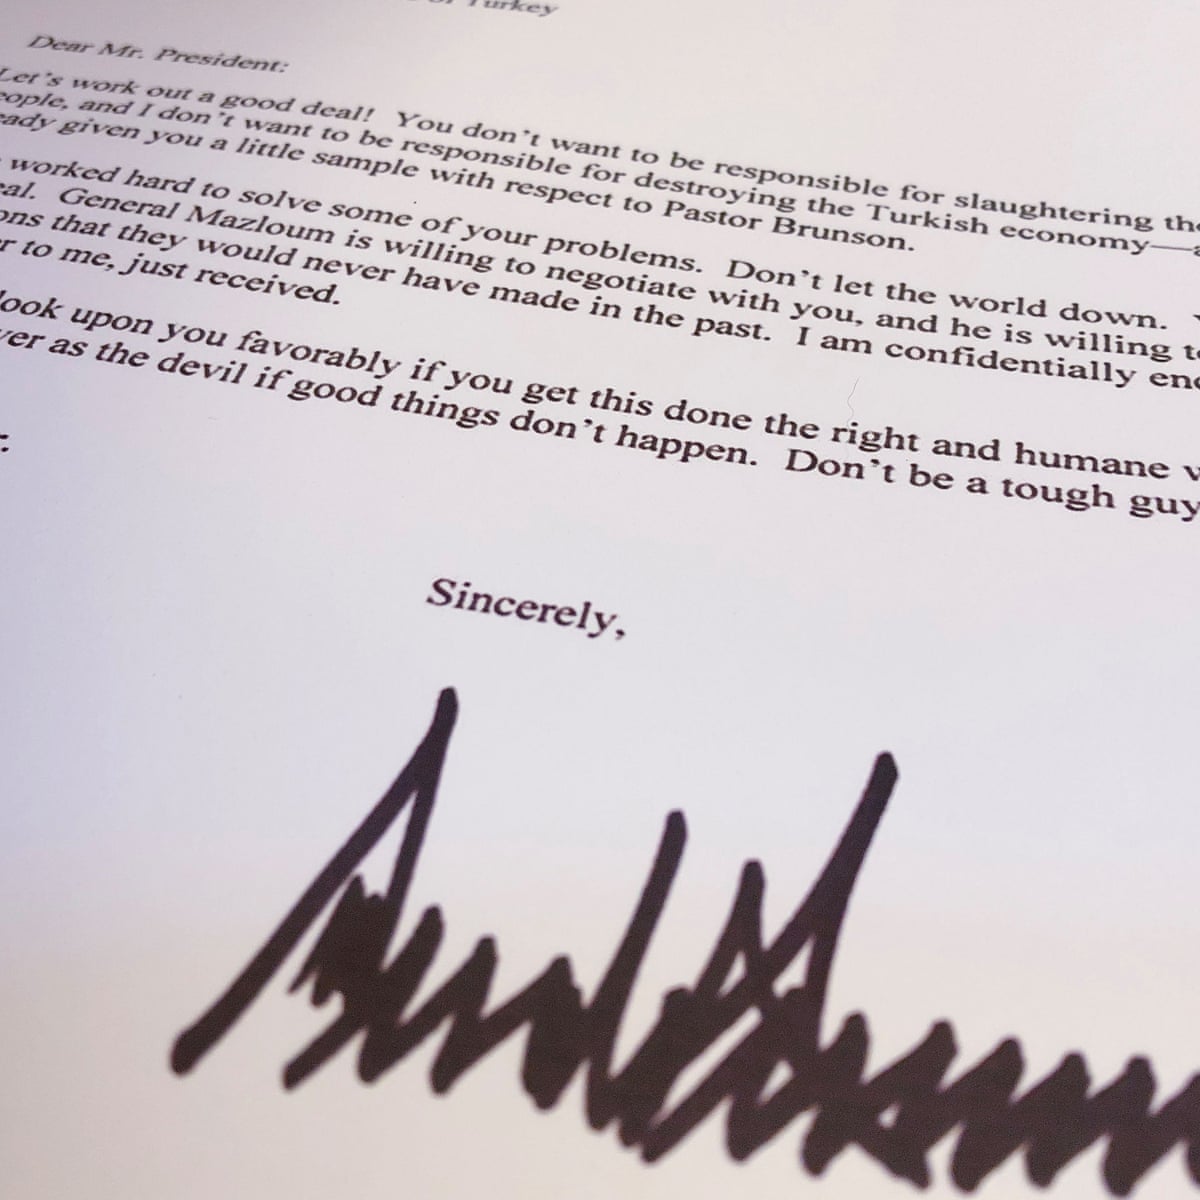 Turkey
Dear Mr. President:
Let's work out a good deal!  You don't want to be responsible for slaughtering
and I don't want to be responsible for destroying the Turkish economy—
given you a little sample with respect to Pastor Brunson.
worked hard to solve some of your problems.  Don't let the world down.
General Mazloum is willing to negotiate with you, and he is willing
that they would never have made in the past.  I am confidentially
to me, just received.
look upon you favorably if you get this done the right and humane
as the devil if good things don't happen.  Don't be a tough guy
Sincerely,